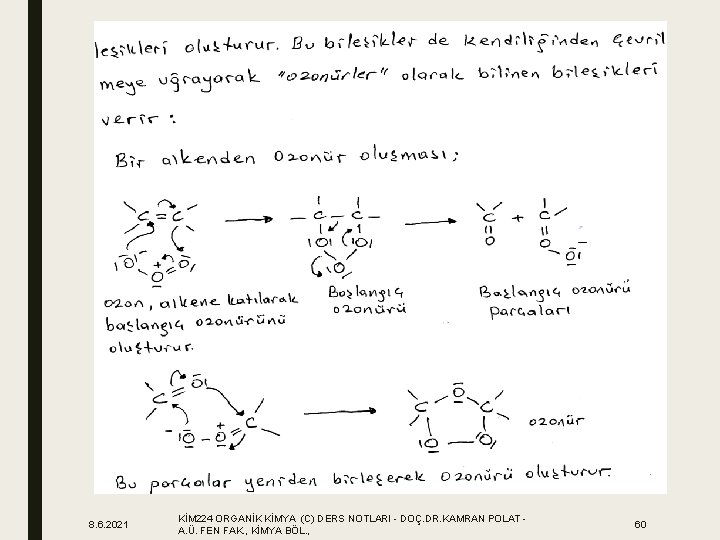 leşikleri oluşturur. Bu bileşikler de kendiliğinden çevril
meye uğrayarak "ozonürler" olarak bilinen bileşikleri
verir :
Bir alkenden ozonür oluşması :
Ozon, alkene katılarak
başlangıç ozonürünü
oluşturur.
Başlangıç
ozonürü
Başlangıç ozonürü
parçaları
ozonür
Bu parçalar yeniden birleşerek ozonürü oluşturur.
8.6.2021
KİM224 ORGANİK KİMYA (C) DERS NOTLARI - DOÇ.DR.KAMRAN POLAT -
A.Ü. FEN FAK., KİMYA BÖL.,
60